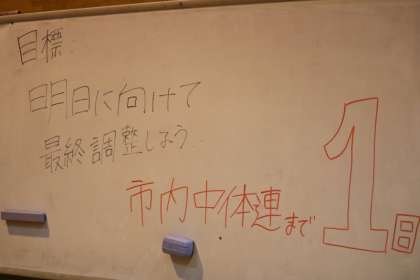 目標
明日に向けて
最終調整しよう
市内中体連まで1日